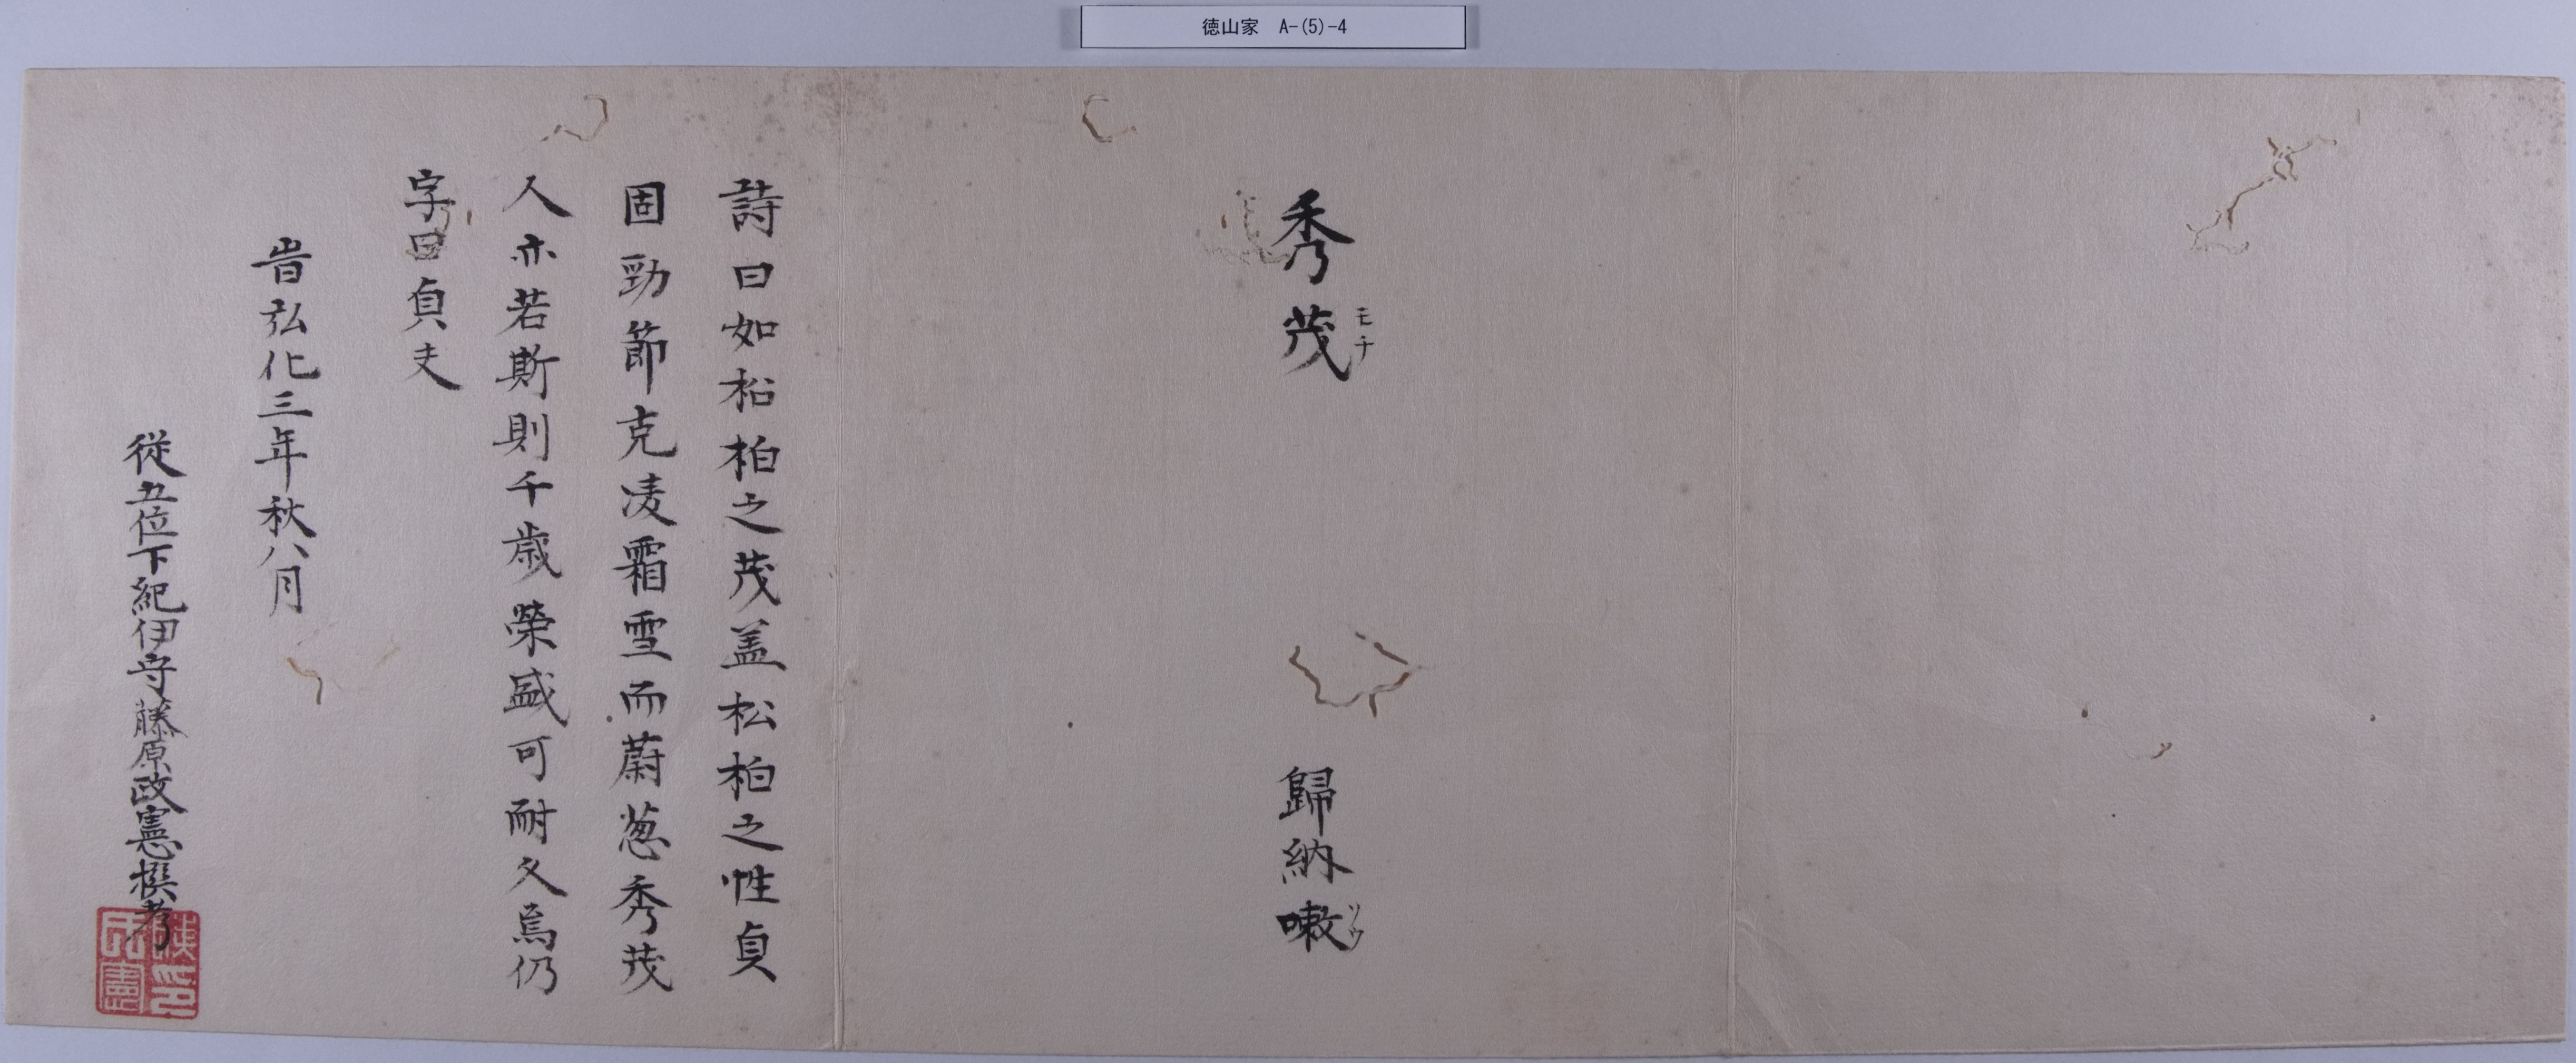 徳山家 A-(5)-4
秀茂
モチ
歸納嗽
ソウ
詩曰如松柏之茂盖松柏之性貞
固勁節克凌霜雪而蔚葱秀茂
人亦若斯則千歳榮盛可耐久焉仍
字曰貞夫
旹弘化三年秋八月
從五位下紀伊守藤原政憲撰考